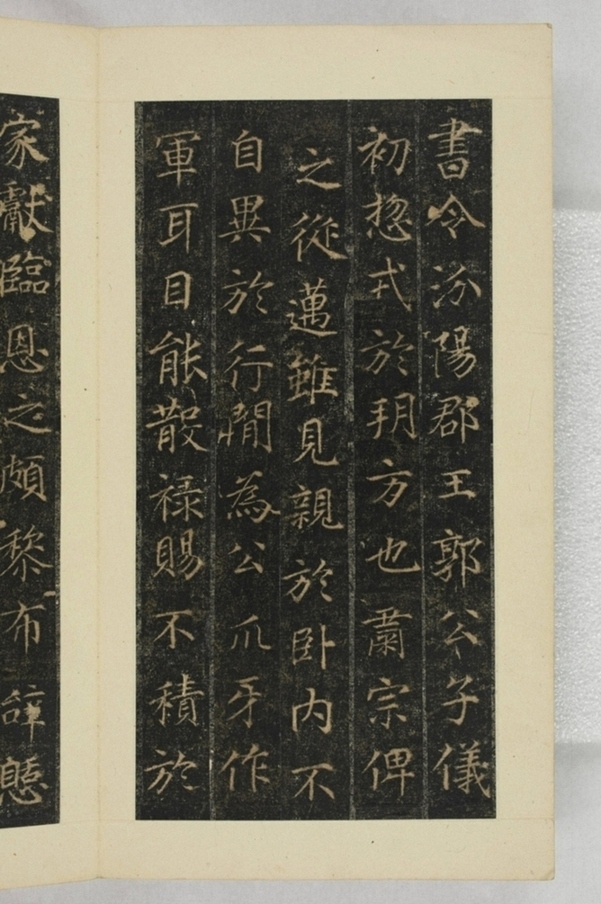 書令汾陽郡王郭公子儀
初惣戎於玥方也肅宗俾
之從邁雖見親於卧内不
自異於行間為公爪牙作
軍耳目能散禄賜不積於
家獻臨恩之頗黎布辞懇